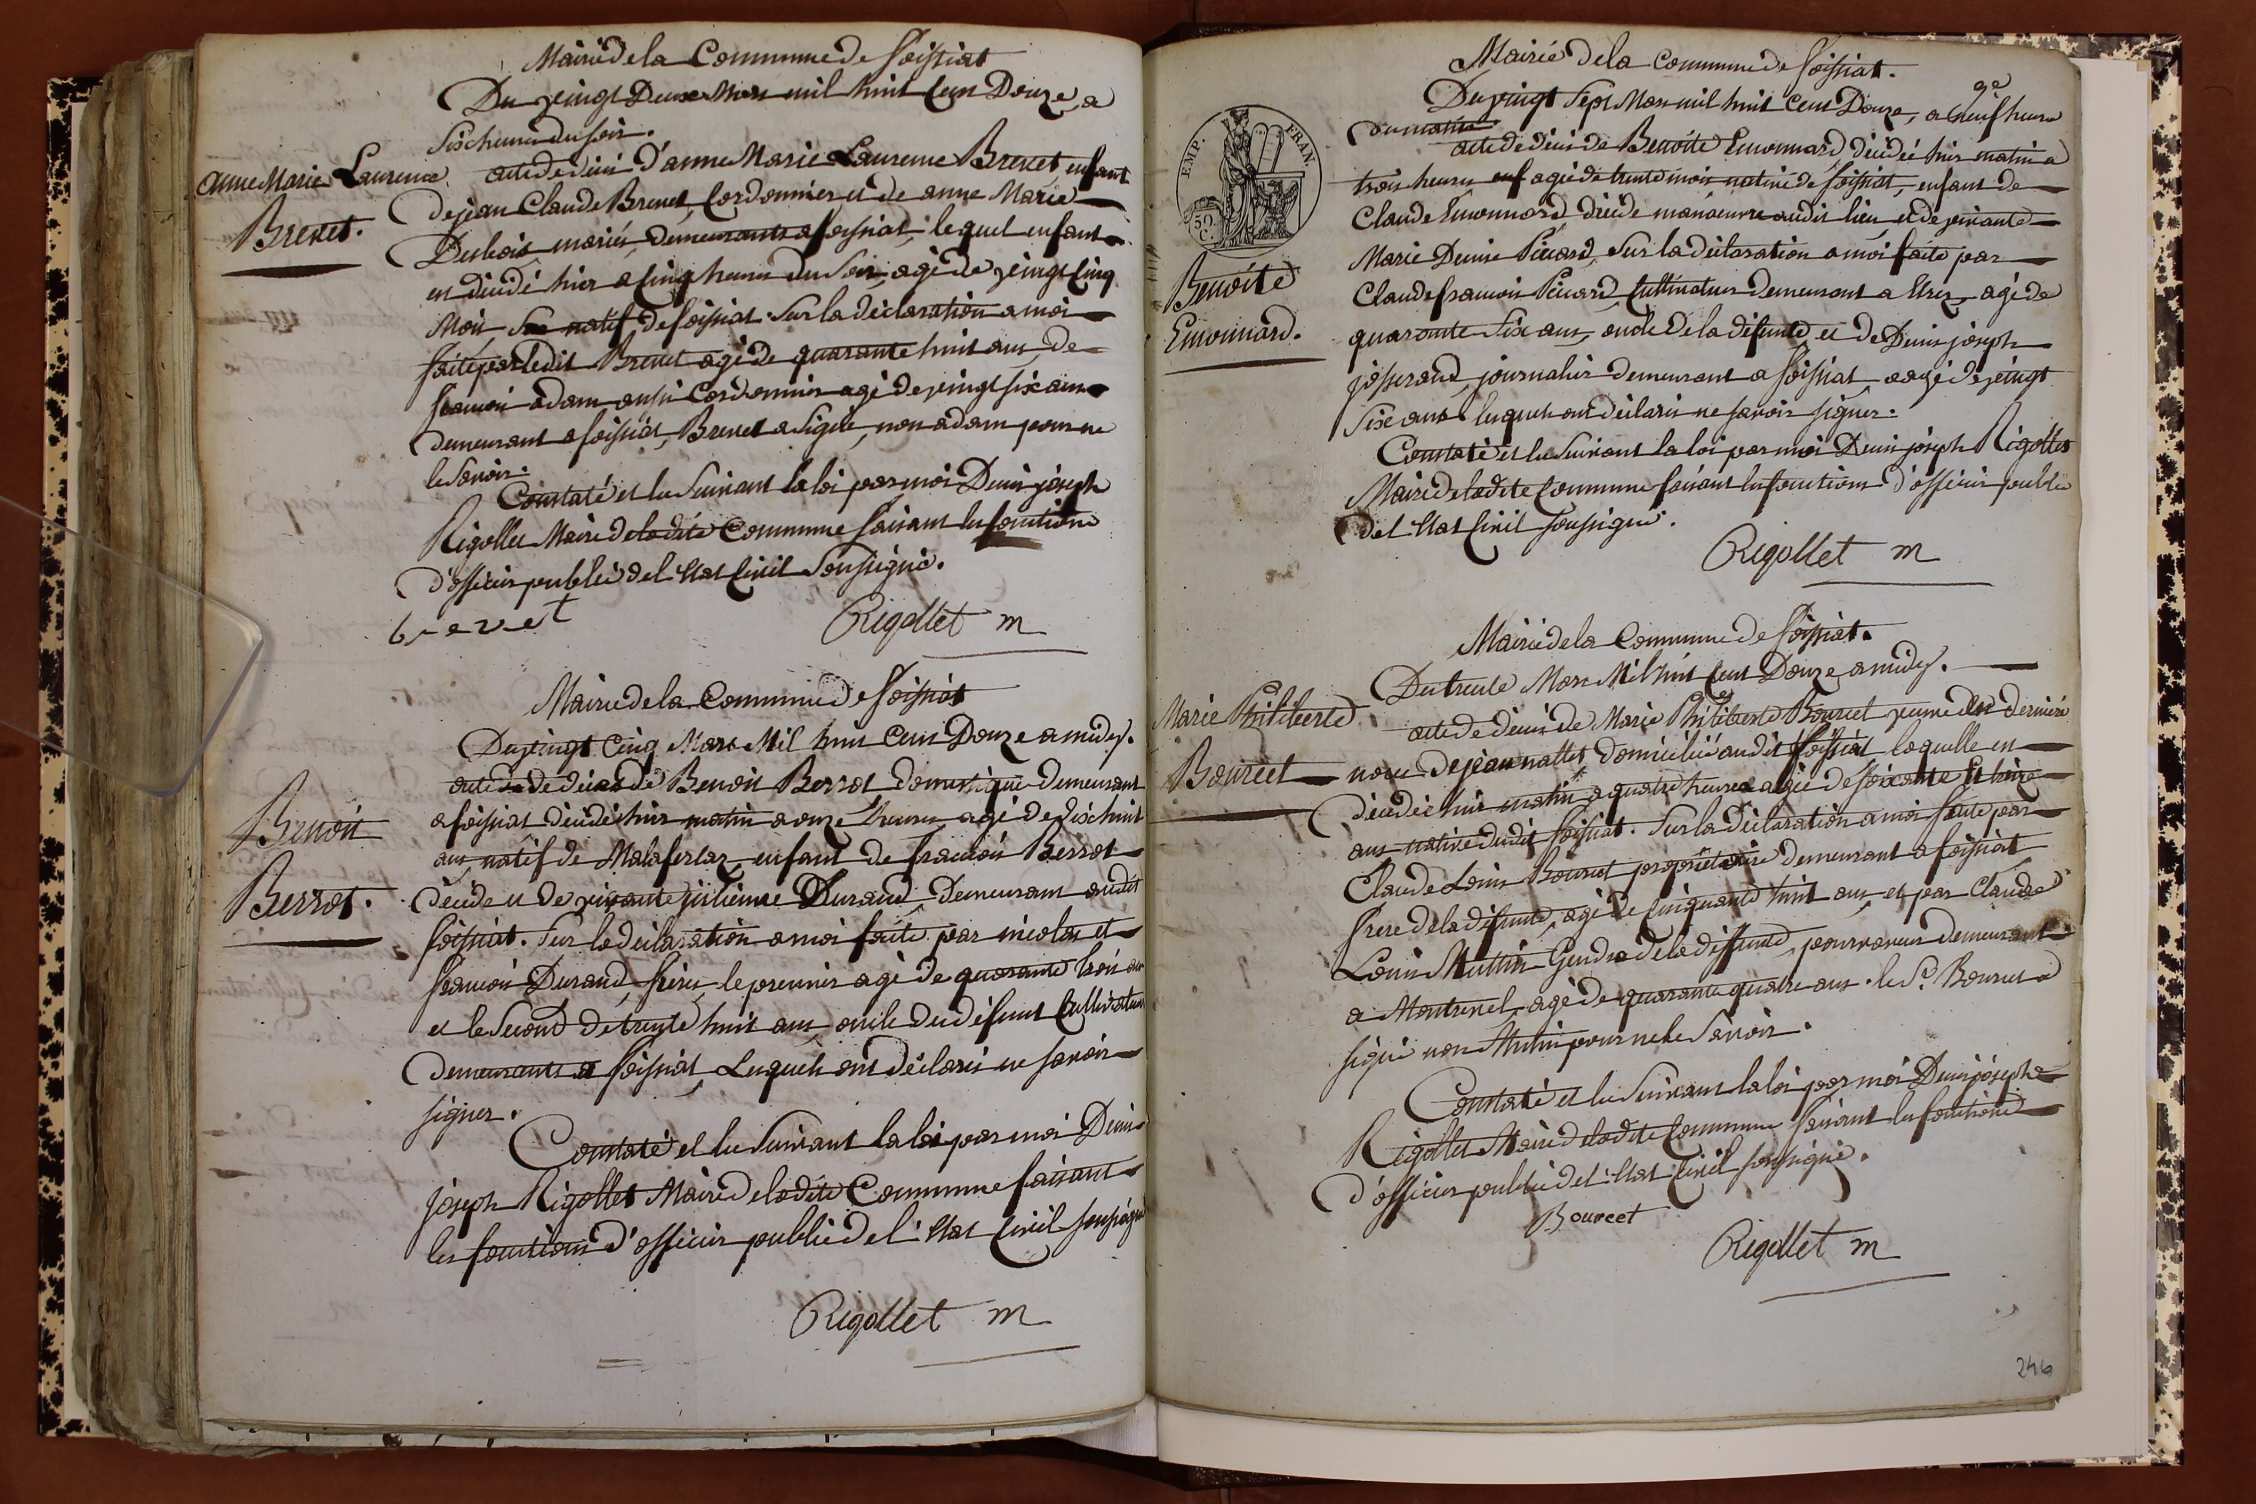 Mairie de la Commune de foissiat
Du vingt Deux Mars mil huit Cent Douze, a
Six heures du soir.
anne Marie Laurence
Brevet.
acte de décès d'anne Marie Laurence Brevet enfant
de jean Claude Brevet, Cordonnier et de anne Marie
Dubois mariés, demeurants a foissiat, lequel enfant
est décédé hier a Cinq heures du Soir, agé de vingt Cinq
Mois, natif de foissiat. Sur la déclaration a moi
faite par ledit Brevet agé de quarante huit ans, de
françois adam aussi Cordonnier agé de vingt six ans
demeurant a foissiat, Brevet a Signé, non adam pour ne
le Savoir.
Constaté et lu Suivant la loi par moi Denis joseph
Rigollet Maire de ladite Commune faisant les fonctions
d'officier public de l'Etat Civil Soussigné.
brevet
Rigollet m
Mairie de la Commune de foissiat
Du vingt Cinq Mars Mil huit Cent Douze a midy.
Benoit
Berrot.
acte de décès de Benoit Berrot domestique demeurant
a foissiat décédé hier matin a onze heures agé de dix huit
ans, natif de Malafretaz, enfant de françois Berrot
décédé et de vivante julienne Durand, Demeurant audit
foissiat. Sur la déclaration a moi faite par nicolas et
françois Durand, frères, le premier agé de quarante trois ans
et le Second de trente huit ans, oncle du défunt Cultivateurs
demeurants a foissiat, Lesquels ont déclaré ne savoir
signer.
Constaté et lu Suivant la loi par moi Denis
joseph Rigollet Maire de ladite Commune faisant
les fonctions d'officier public de l'Etat Civil soussigné
Rigollet m
Mairie de la Commune de foissiat.
Du vingt Sept Mars mil huit Cent Douze, a neuf heures
du matin
EMP. FRAN.
50 C.
Benoite
Emonnard.
acte de décès de Benoite Emonnard décédée hier matin a
trois heures agée de trente mois native de foissiat, enfant de
Claude Emonnard décédé manoeuvre audit lieu, et de vivante
Marie Denise Picard, Sur la déclaration a moi faite par
Claude françois Picard Cultivateur demeurant a Etrez, agé de
quarante Six ans, oncle de la défunte, et de Denis joseph
josserand, journalier demeurant a foissiat, agé de vingt
Six ans lesquels ont déclaré ne savoir signer.
Constaté et lu Suivant la loi par moi Denis joseph Rigollet
Maire de ladite Commune faisant les fonctions d'officier public
de l'Etat Civil soussigné.
Rigollet m
Mairie de la Commune de foissiat.
Du trente Mars Mil huit Cent Douze a midy.
Marie Philiberte
Bourcet
acte de décès de Marie Philiberte Bourcet veuve en dernière
noces de jean nallet, domiciliée audit foissiat laquelle est
décédée hier matin a quatre heures agée de soixante et treize
ans native dudit foissiat. Sur la déclaration a moi faite par
Claude Louis Bourcet propriétaire demeurant a foissiat
frere de la défunte, agé de Cinquante huit ans, et par Claude
Louis Gendre de la deffunte, demeurant
a Montrevel, agé de quarante quatre ans. le Sr. Bourcet a
signé non pour ne le Savoir.
Constaté et lu Suivant la loi par moi Denis joseph
Rigollet Maire de ladite Commune faisant les fonctions
d'officier public de l'Etat Civil soussigné.
Bourcet
Rigollet m
246